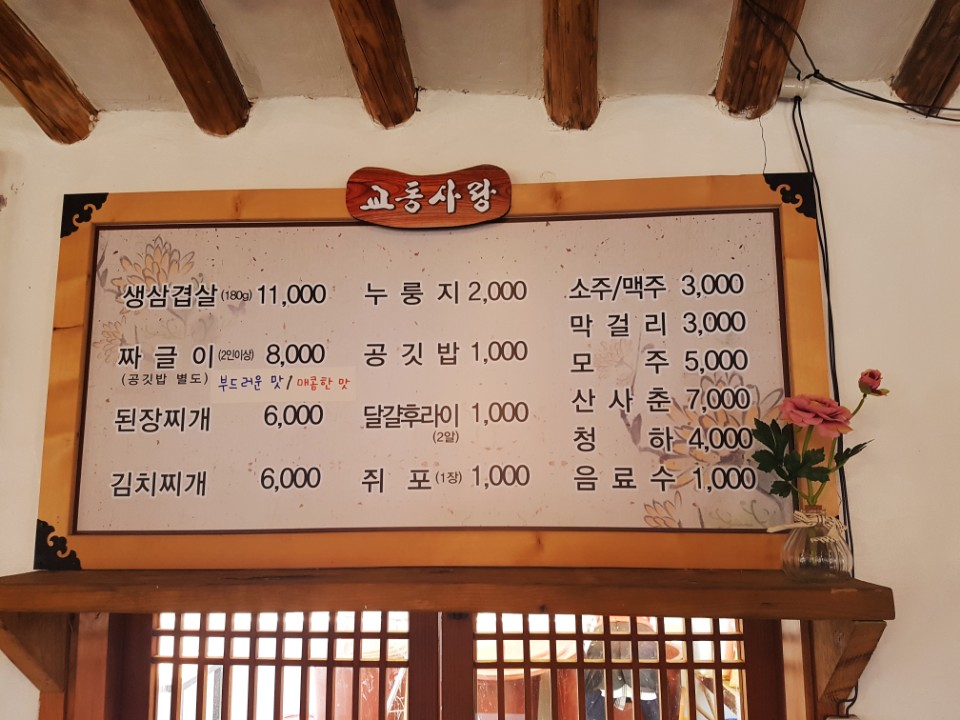 교동사랑
생삼겹살(180g) 11,000
짜글이(2인이상) 8,000
(공깃밥 별도) 부드러운 맛/매콤한 맛
된장찌개 6,000
김치찌개 6,000
누룽지 2,000
공깃밥 1,000
달걀후라이 1,000
(2알)
쥐포(1장) 1,000
소주/맥주 3,000
막걸리 3,000
모주 5,000
산사춘 7,000
청하 4,000
음료수 1,000